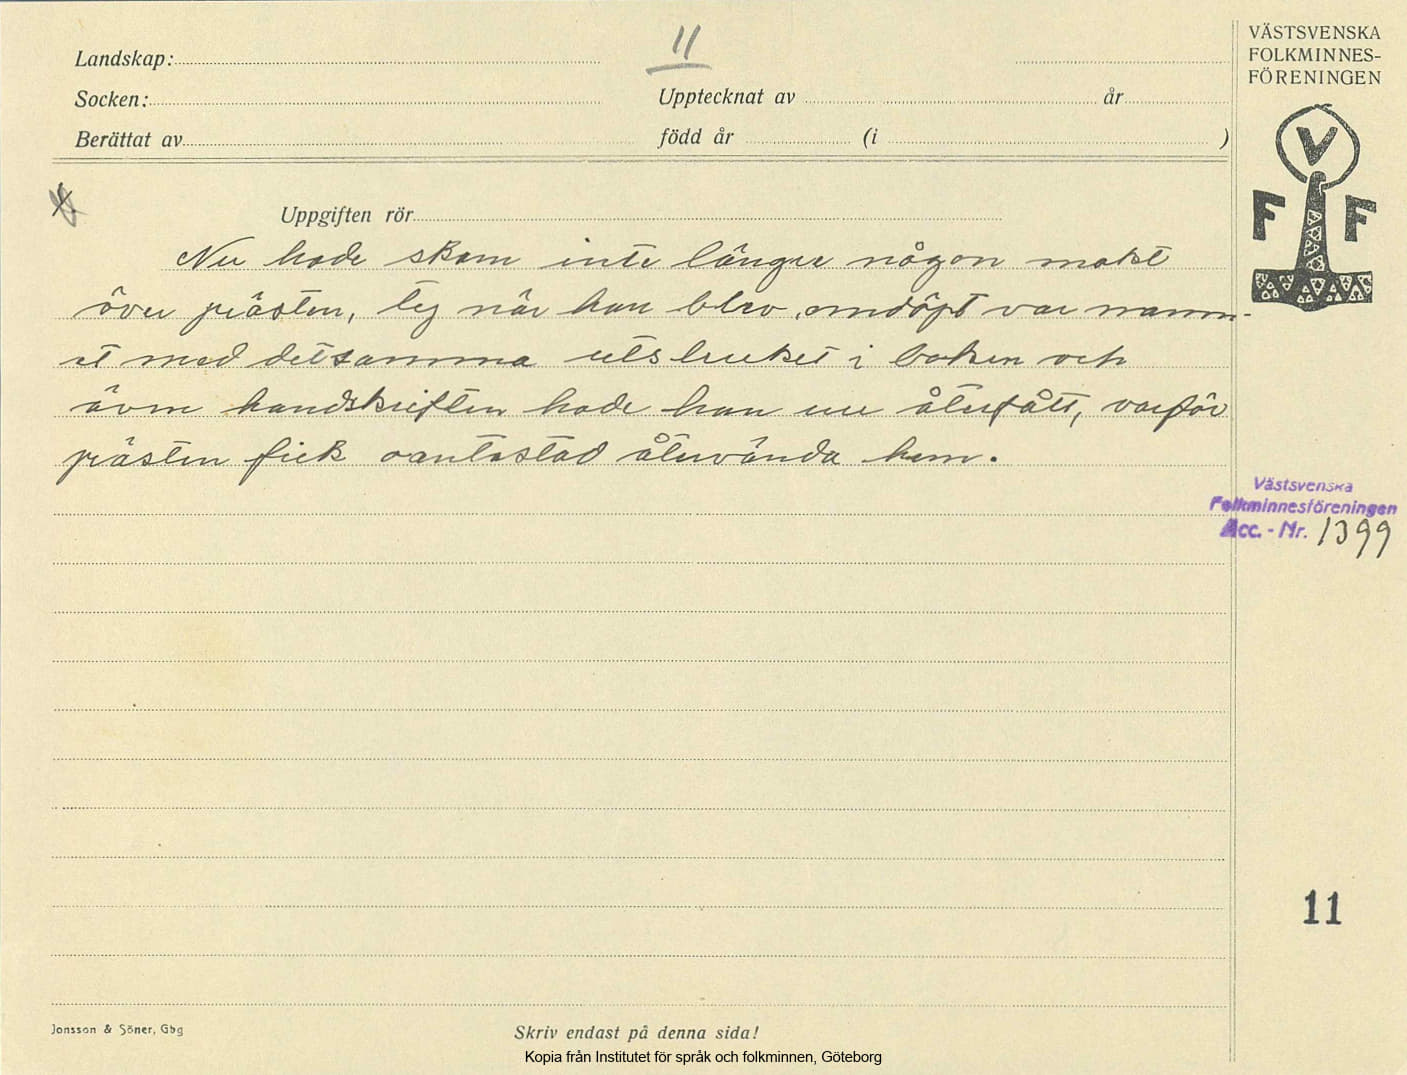 11
VÄSTSVENSKA
FOLKMINNES-
FÖRENINGEN
Landskap:
Socken:
Upptecknat av år
Berättat av född år (i )
V
F F
Uppgiften rör
Nu hade skam inte längre någon makt
över prästen, ty när han blev omdöpt var namn-
et med detsamma utstruket i boken och
även handskriften hade han nu återfått, varför
prästen fick oantastad återvända hem.
Västsvenska
Folkminnesföreningen
Acc. - Nr. 1399
11
Jonsson & Söner, Gbg
Skriv endast på denna sida!
Kopia från Institutet för språk och folkminnen, Göteborg